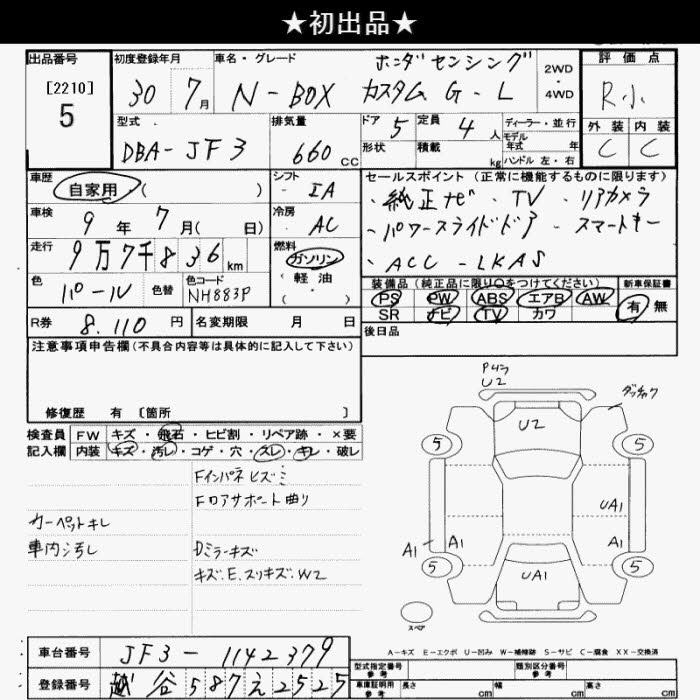 ★初出品★
出品番号
[2210]
5
初度登録年月
30 7月
車名・グレード
N-BOX カスタム G-L
ホンダセンシング
2WD
・
4WD
評価点
R小
外装 内装
C C
型式
DBA-JF3
排気量
660 CC
ドア 5
形状
定員 4人
積載 kg
ディーラー・並行
モデル
年式 年
ハンドル 左・右
車歴
自家用 ( )
シフト
IA
車検
9年 7月( 日)
冷房
AC
走行
9万7千836km
燃料
ガソリン
軽油
( )
色
パール
色替
色コード
NH883P
R券
8.110円
名変期限 月 日
セールスポイント(正常に機能するものに限ります)
・純正ナビ・TV・リアカメラ
・パワースライドドア・スマートキー
・ACC-LKAS
装備品(純正品に限り○をつけてください)
PS PW ABS エアB AW
SR ナビ TV カワ
新車保証書
有 無
後日品
注意事項申告欄(不具合内容等は具体的に記入して下さい)
修復歴 有〔箇所 〕
検査員
記入欄
FW キズ・飛石・ヒビ割・リペア跡・×要
内装 キズ・汚レ・コゲ・穴・スレ・キレ・破レ
Fロアサポート曲り
カーペットキレ
車内汚れ
Dミラーキズ
キズ.E.スリキズ.W2
U2
U2
5
5
UA1
A1
A1
5
5
UA1
スペア
A-キズ E-エクボ U-凹み W-補修跡 S-サビ C-腐食 XX-交換済
車台番号
JF3-1142379
登録番号
越谷587え2525
型式指定番号
参考
類別区分番号
参考
車庫証明用
参考
長さ cm
幅 cm
高さ cm